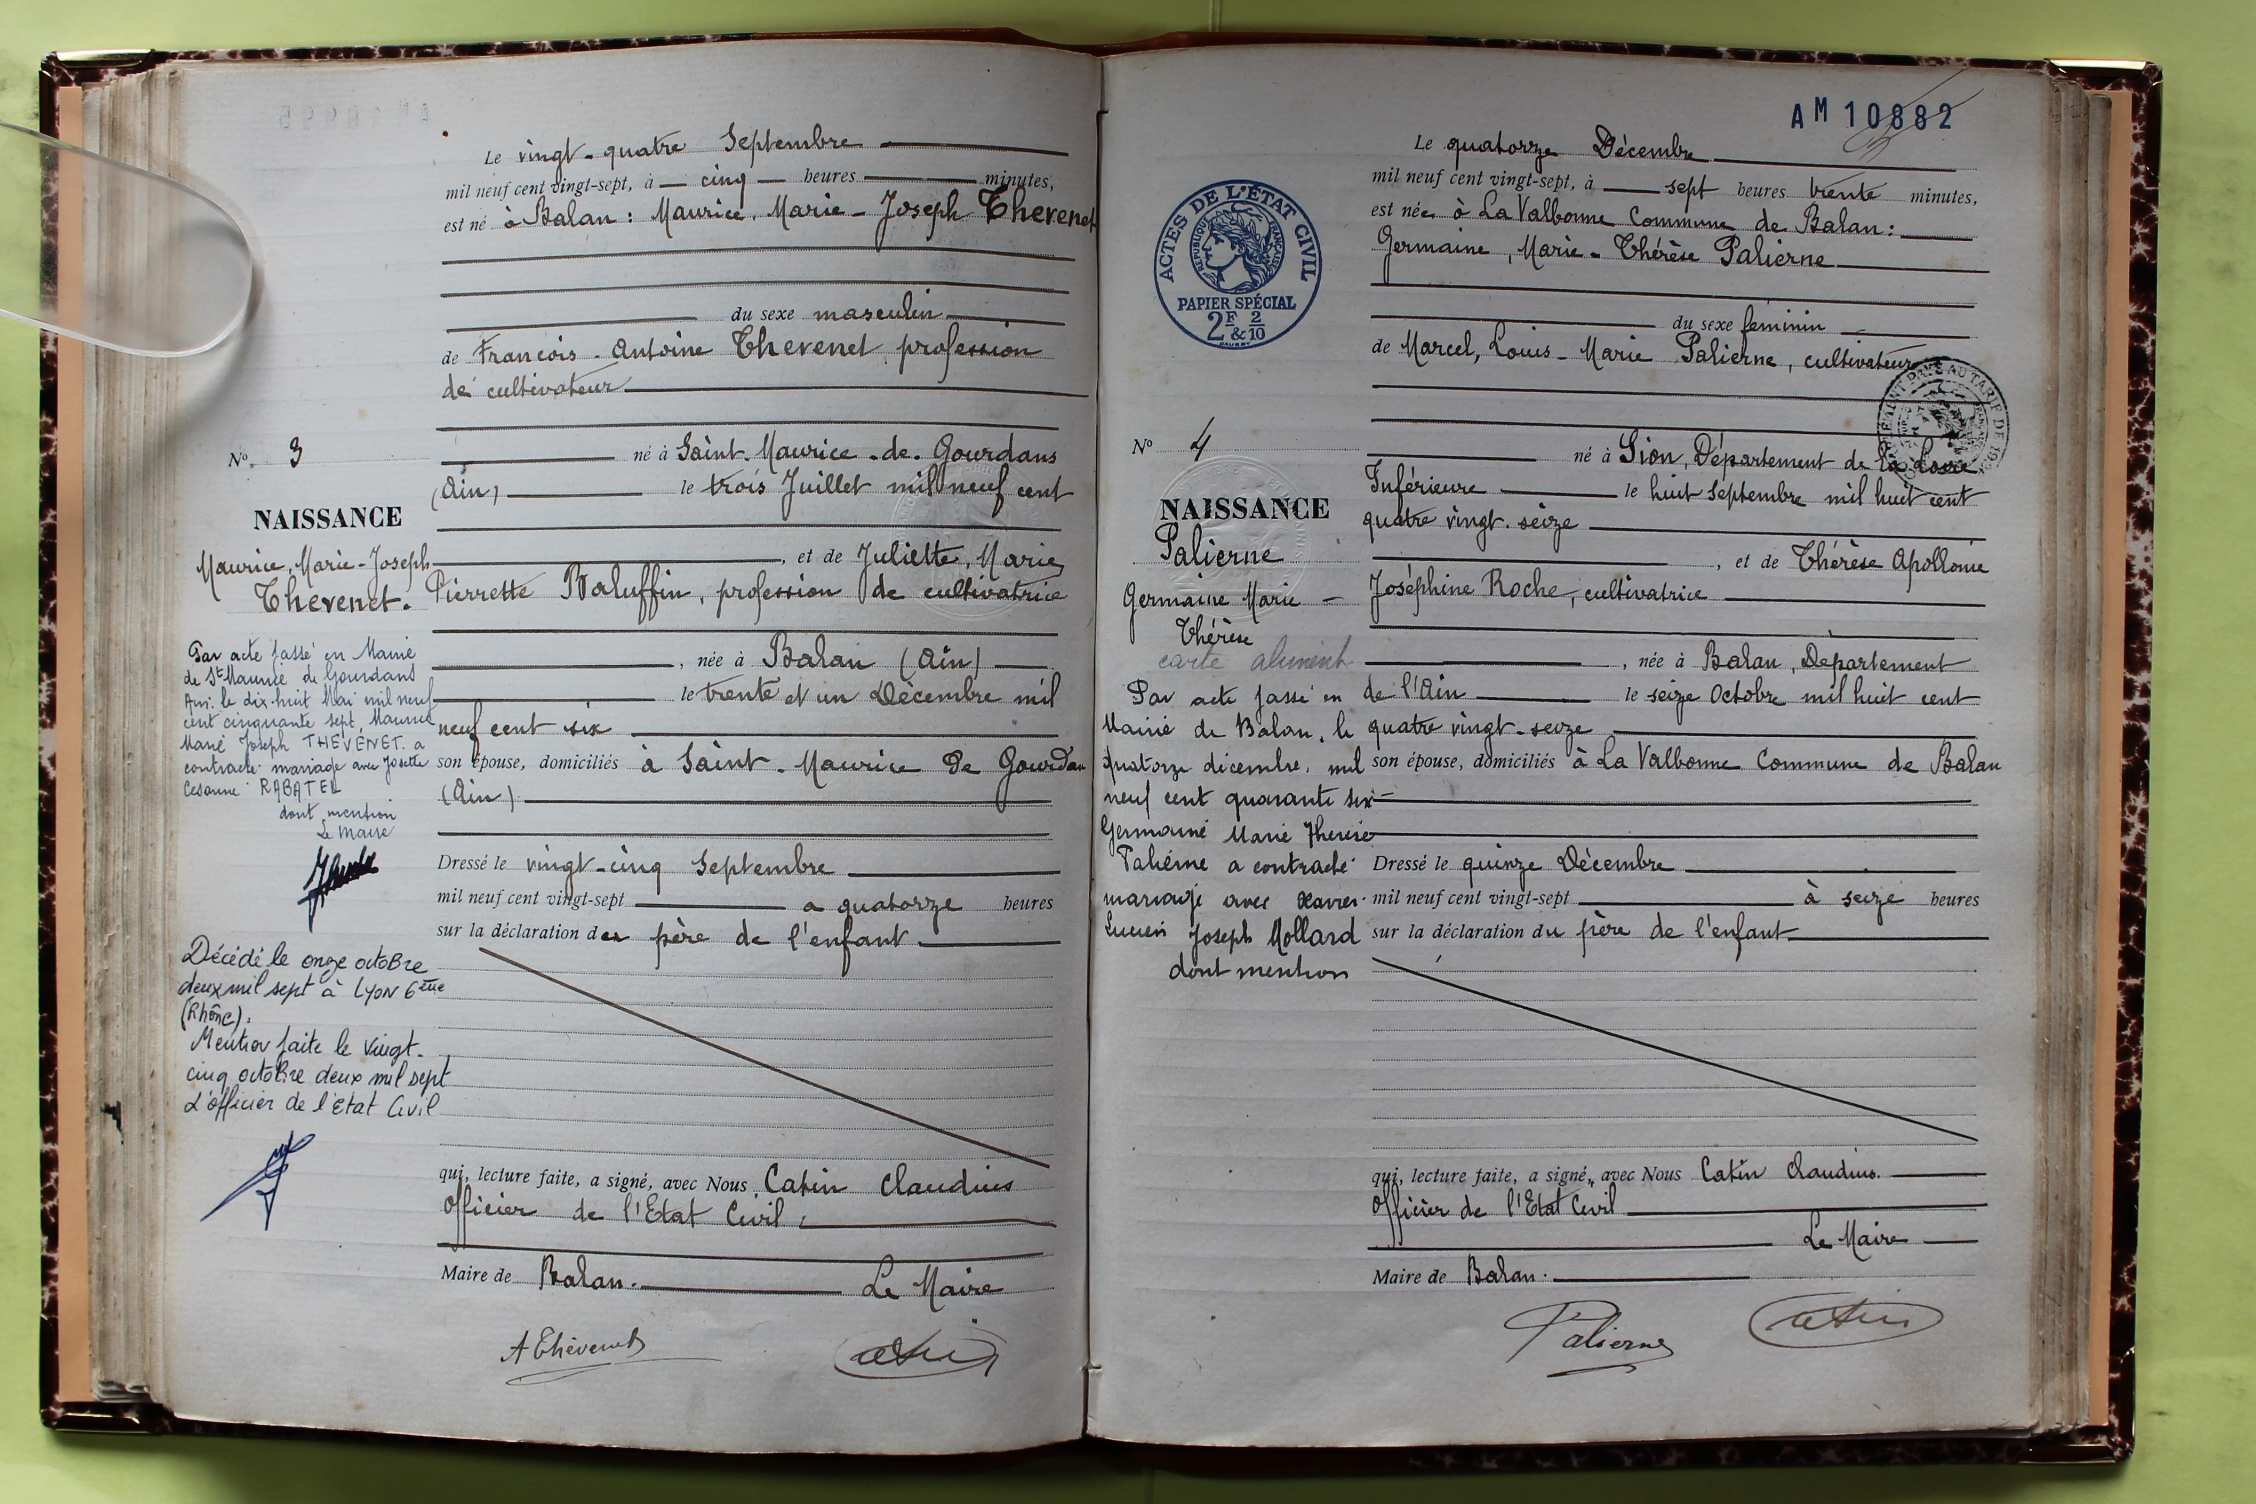 Le vingt-quatre Septembre
mil neuf cent vingt-sept, à cinq heures minutes,
est né à Balan : Maurice, Marie-Joseph Thevenet
du sexe masculin
de François-Antoine Thevenet, profession
de cultivateur
né à Saint-Maurice-de-Gourdans
(Ain) le trois Juillet mil neuf cent
, et de Juliette, Marie,
Pierrette Baluffin, profession de cultivatrice
, née à Balan (Ain)
le trente et un Décembre mil
neuf cent six
son épouse, domiciliés à Saint-Maurice de Gourdan
(Ain)
Dressé le vingt-cinq Septembre
mil neuf cent vingt-sept a quatorze heures
sur la déclaration du père de l'enfant
qui, lecture faite, a signé, avec Nous Catin Claudius
Officier de l'Etat Civil,
Maire de Balan. Le Maire
A Thévenet
Catin
N° 3
NAISSANCE
Maurice, Marie-Joseph
Thevenet.
Par acte passé en Mairie
de St Maurice de Gourdans
Ain. le dix-huit Mai mil neuf
cent cinquante sept, Maurice
Marie Joseph THEVENET. a
contracté mariage avec Josette
Césarine RABATEL
dont mention
Le Maire
Décédé le onze octobre
deux mil sept à LYON 6ème
(Rhône).
Mention faite le vingt-
cinq octobre deux mil sept
L'officier de l'Etat Civil
AM 10882
ACTES DE L'ÉTAT CIVIL
RÉPUBLIQUE FRANÇAISE
PAPIER SPÉCIAL
2F & 2/10
Le quatorze Décembre
mil neuf cent vingt-sept, à sept heures trente minutes,
est née à La Valbonne Commune de Balan :
Germaine, Marie-Thérèse Palierne
du sexe féminin
de Marcel, Louis-Marie Palierne, cultivateur
né à Sion, Département de la Loire
Inférieure le huit Septembre mil huit cent
quatre vingt-seize
, et de Thérèse Apollonie
Joséphine Roche, cultivatrice
, née à Balan, Département
de l'Ain le seize Octobre mil huit cent
quatre vingt-seize
son épouse, domiciliés à La Valbonne Commune de Balan
Dressé le quinze Décembre
mil neuf cent vingt-sept à seize heures
sur la déclaration du père de l'enfant
qui, lecture faite, a signé, avec Nous Catin Claudius.
Officier de l'Etat Civil
Le Maire
Maire de Balan.
Palierne
Catin
N° 4
NAISSANCE
Palierne
Germaine Marie-
Thérèse
carte aliment
Par acte passé en
Mairie de Balan, le
quatorze décembre, mil
neuf cent quarante six
Germaine Marie Thérèse
Palierne a contracté
mariage avec Xavier
Lucien Joseph Mollard
dont mention